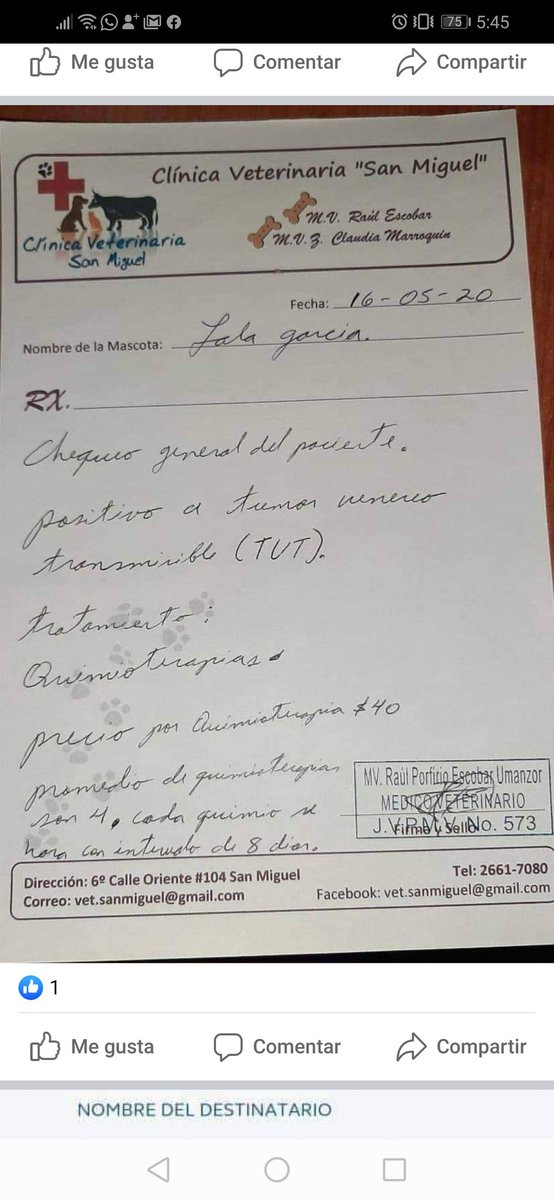 75 5:45
Me gusta Comentar Compartir
Clínica Veterinaria "San Miguel"
M.V. Raúl Escobar
M.V.Z. Claudia Marroquín
Clínica Veterinaria
San Miguel
Fecha: 16-05-20
Nombre de la Mascota: Lala garcia.
RX.
Chequeo general del paciente.
positivo a tumor venereo
transmisible (TVT).
tratamiento:
Quimioterapias.
precio por Quimioterapia $40
promedio de quimioterapias
son 4, cada quimio se
hara con intervalo de 8 dias.
MV. Raúl Porfirio Escobar Umanzor
MEDICO VETERINARIO
J.V.P.M.V. No. 573
Firma y Sello
Dirección: 6º Calle Oriente #104 San Miguel
Tel: 2661-7080
Correo: vet.sanmiguel@gmail.com
Facebook: vet.sanmiguel@gmail.com
1
Me gusta Comentar Compartir
NOMBRE DEL DESTINATARIO